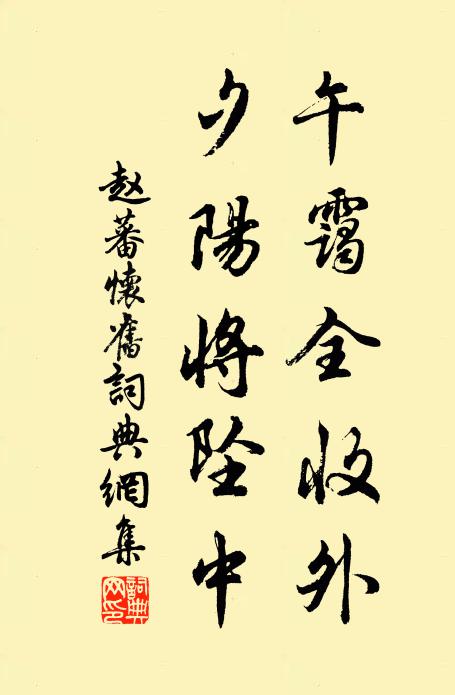 午靄全收外
夕陽將墜中
赵蕃懷舊詞典網集
詞典
网印